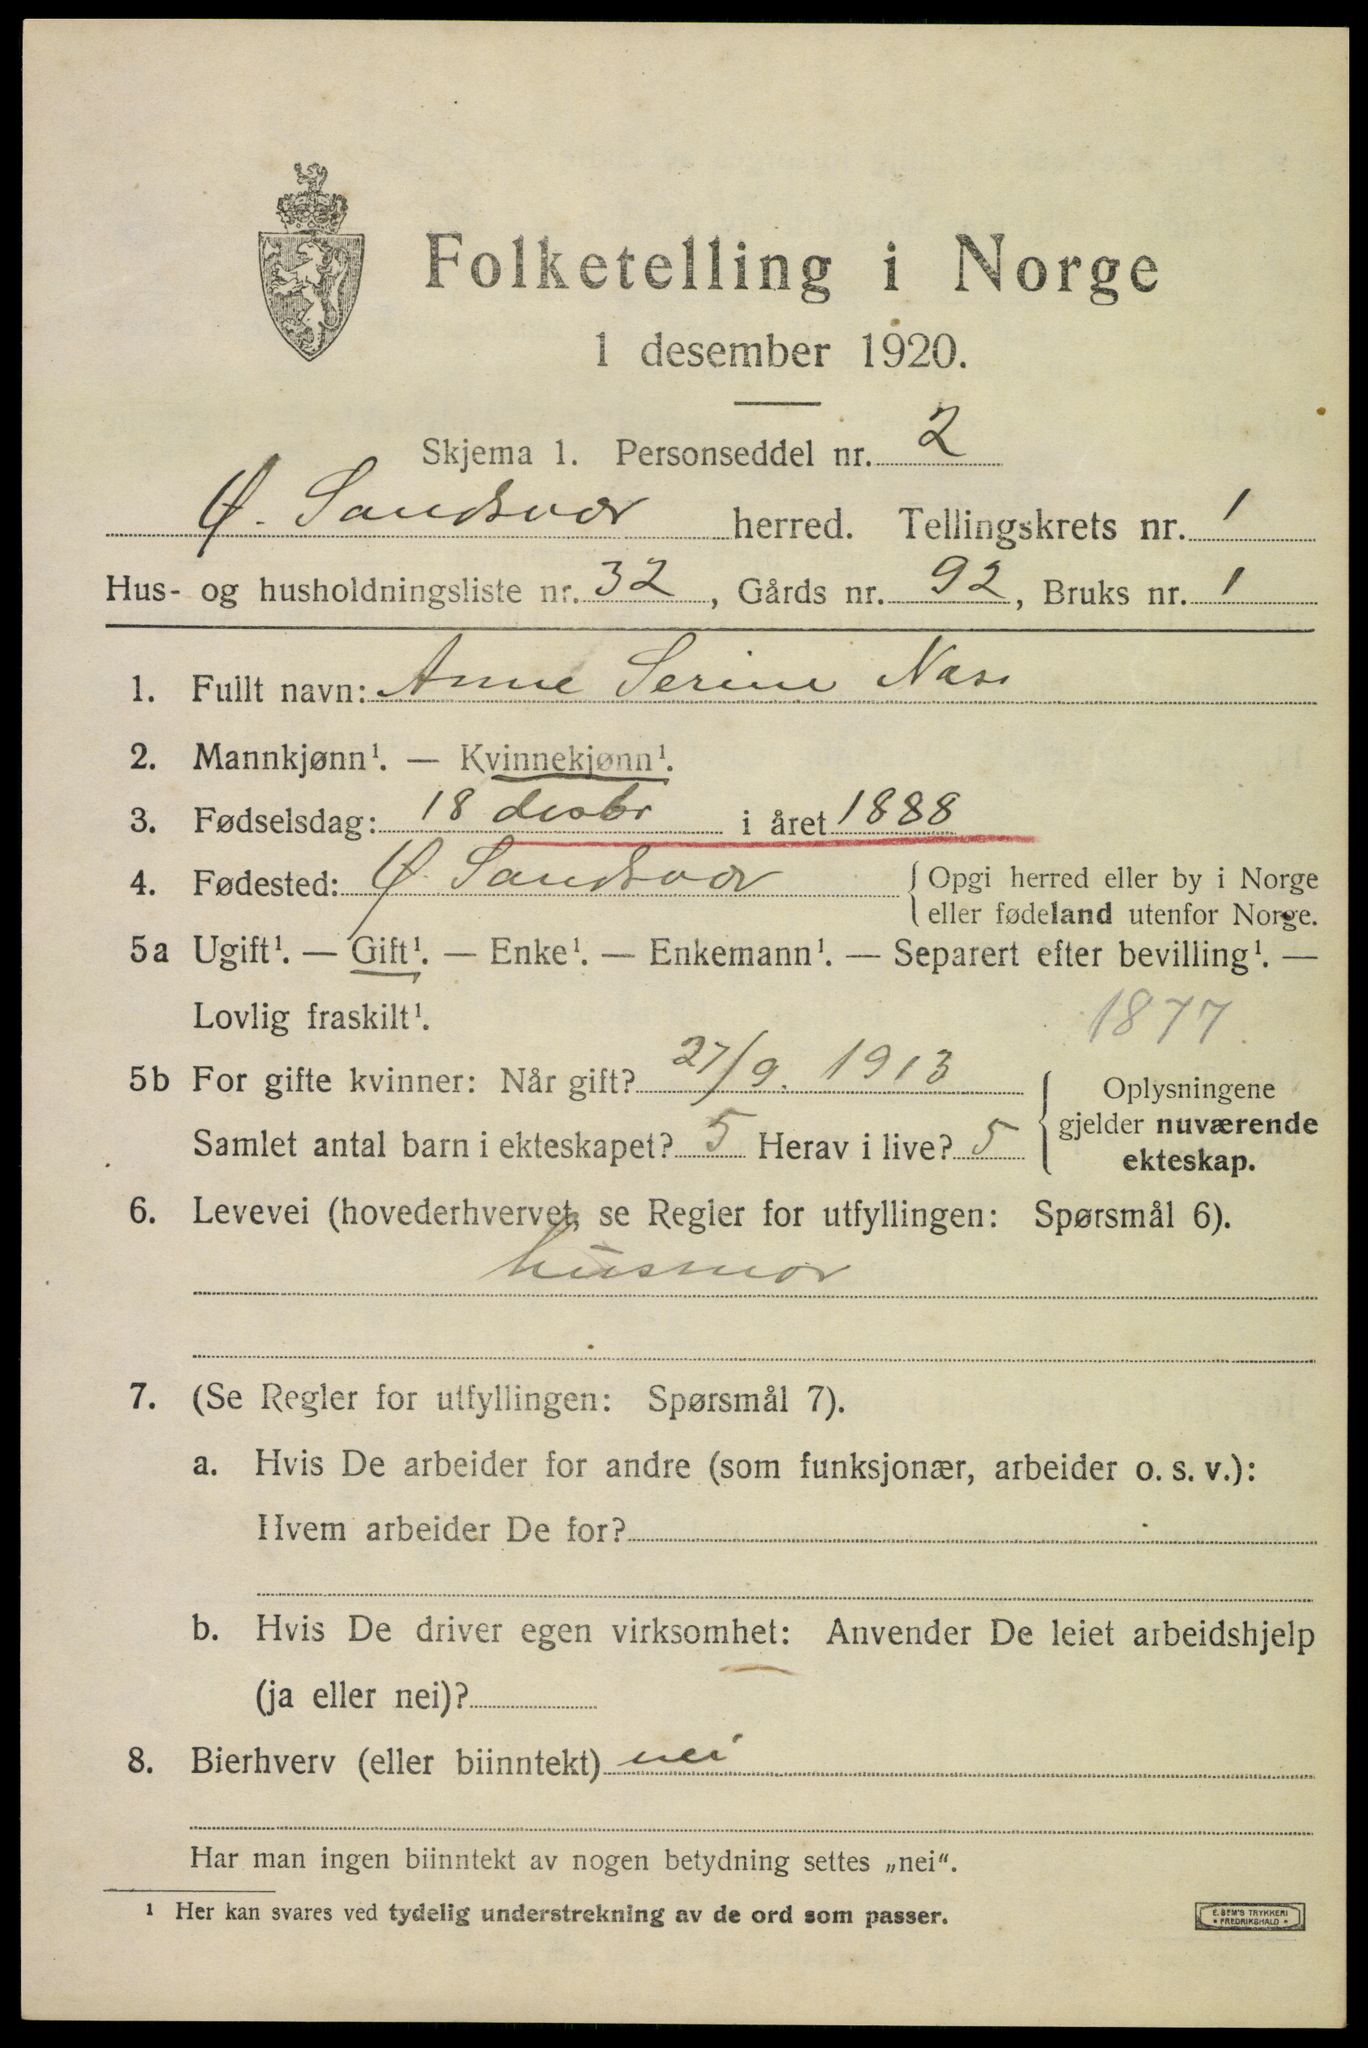 Folketelling i Norge
1 desember 1920.
Skjema 1. Personseddel nr. 2
Ø. Sandsvær herred. Tellingskrets nr. 1
Hus- og husholdningsliste nr. 32, Gårds nr. 92, Bruks nr. 1
1. Fullt navn: Anne Serine Næss
2. Mannkjønn¹. — Kvinnekjønn¹.
3. Fødselsdag: 18 desbr i året 1888
4. Fødested: Ø. Sandsvær { Opgi herred eller by i Norge
eller fødeland utenfor Norge.
5a Ugift¹. — Gift¹. — Enke¹. — Enkemann¹. — Separert efter bevilling¹. —
Lovlig fraskilt¹. 1877
5b For gifte kvinner: Når gift? 27/9. 1913 Oplysningene
Samlet antal barn i ekteskapet? 5 Herav i live? 5 { gjelder nuværende
ekteskap.
6. Levevei (hovederhvervet, se Regler for utfyllingen: Spørsmål 6).
husmor
7. (Se Regler for utfyllingen: Spørsmål 7).
a. Hvis De arbeider for andre (som funksjonær, arbeider o. s. v.):
Hvem arbeider De for?
b. Hvis De driver egen virksomhet: Anvender De leiet arbeidshjelp
(ja eller nei)?
8. Bierhverv (eller biinntekt) nei
Har man ingen biinntekt av nogen betydning settes „nei“.
¹ Her kan svares ved tydelig understrekning av de ord som passer.
E. SEM'S TRYKKERI
• FREDRIKSHALD •